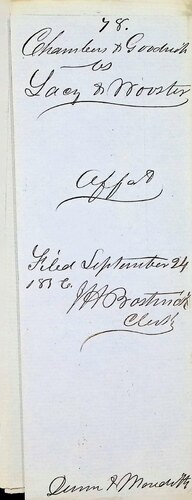 78.
Chambers & Goodrich
vs
Lacy & Wooster
Affat
Filed September 24
1856
Bostwick
Clerk
& Meredith